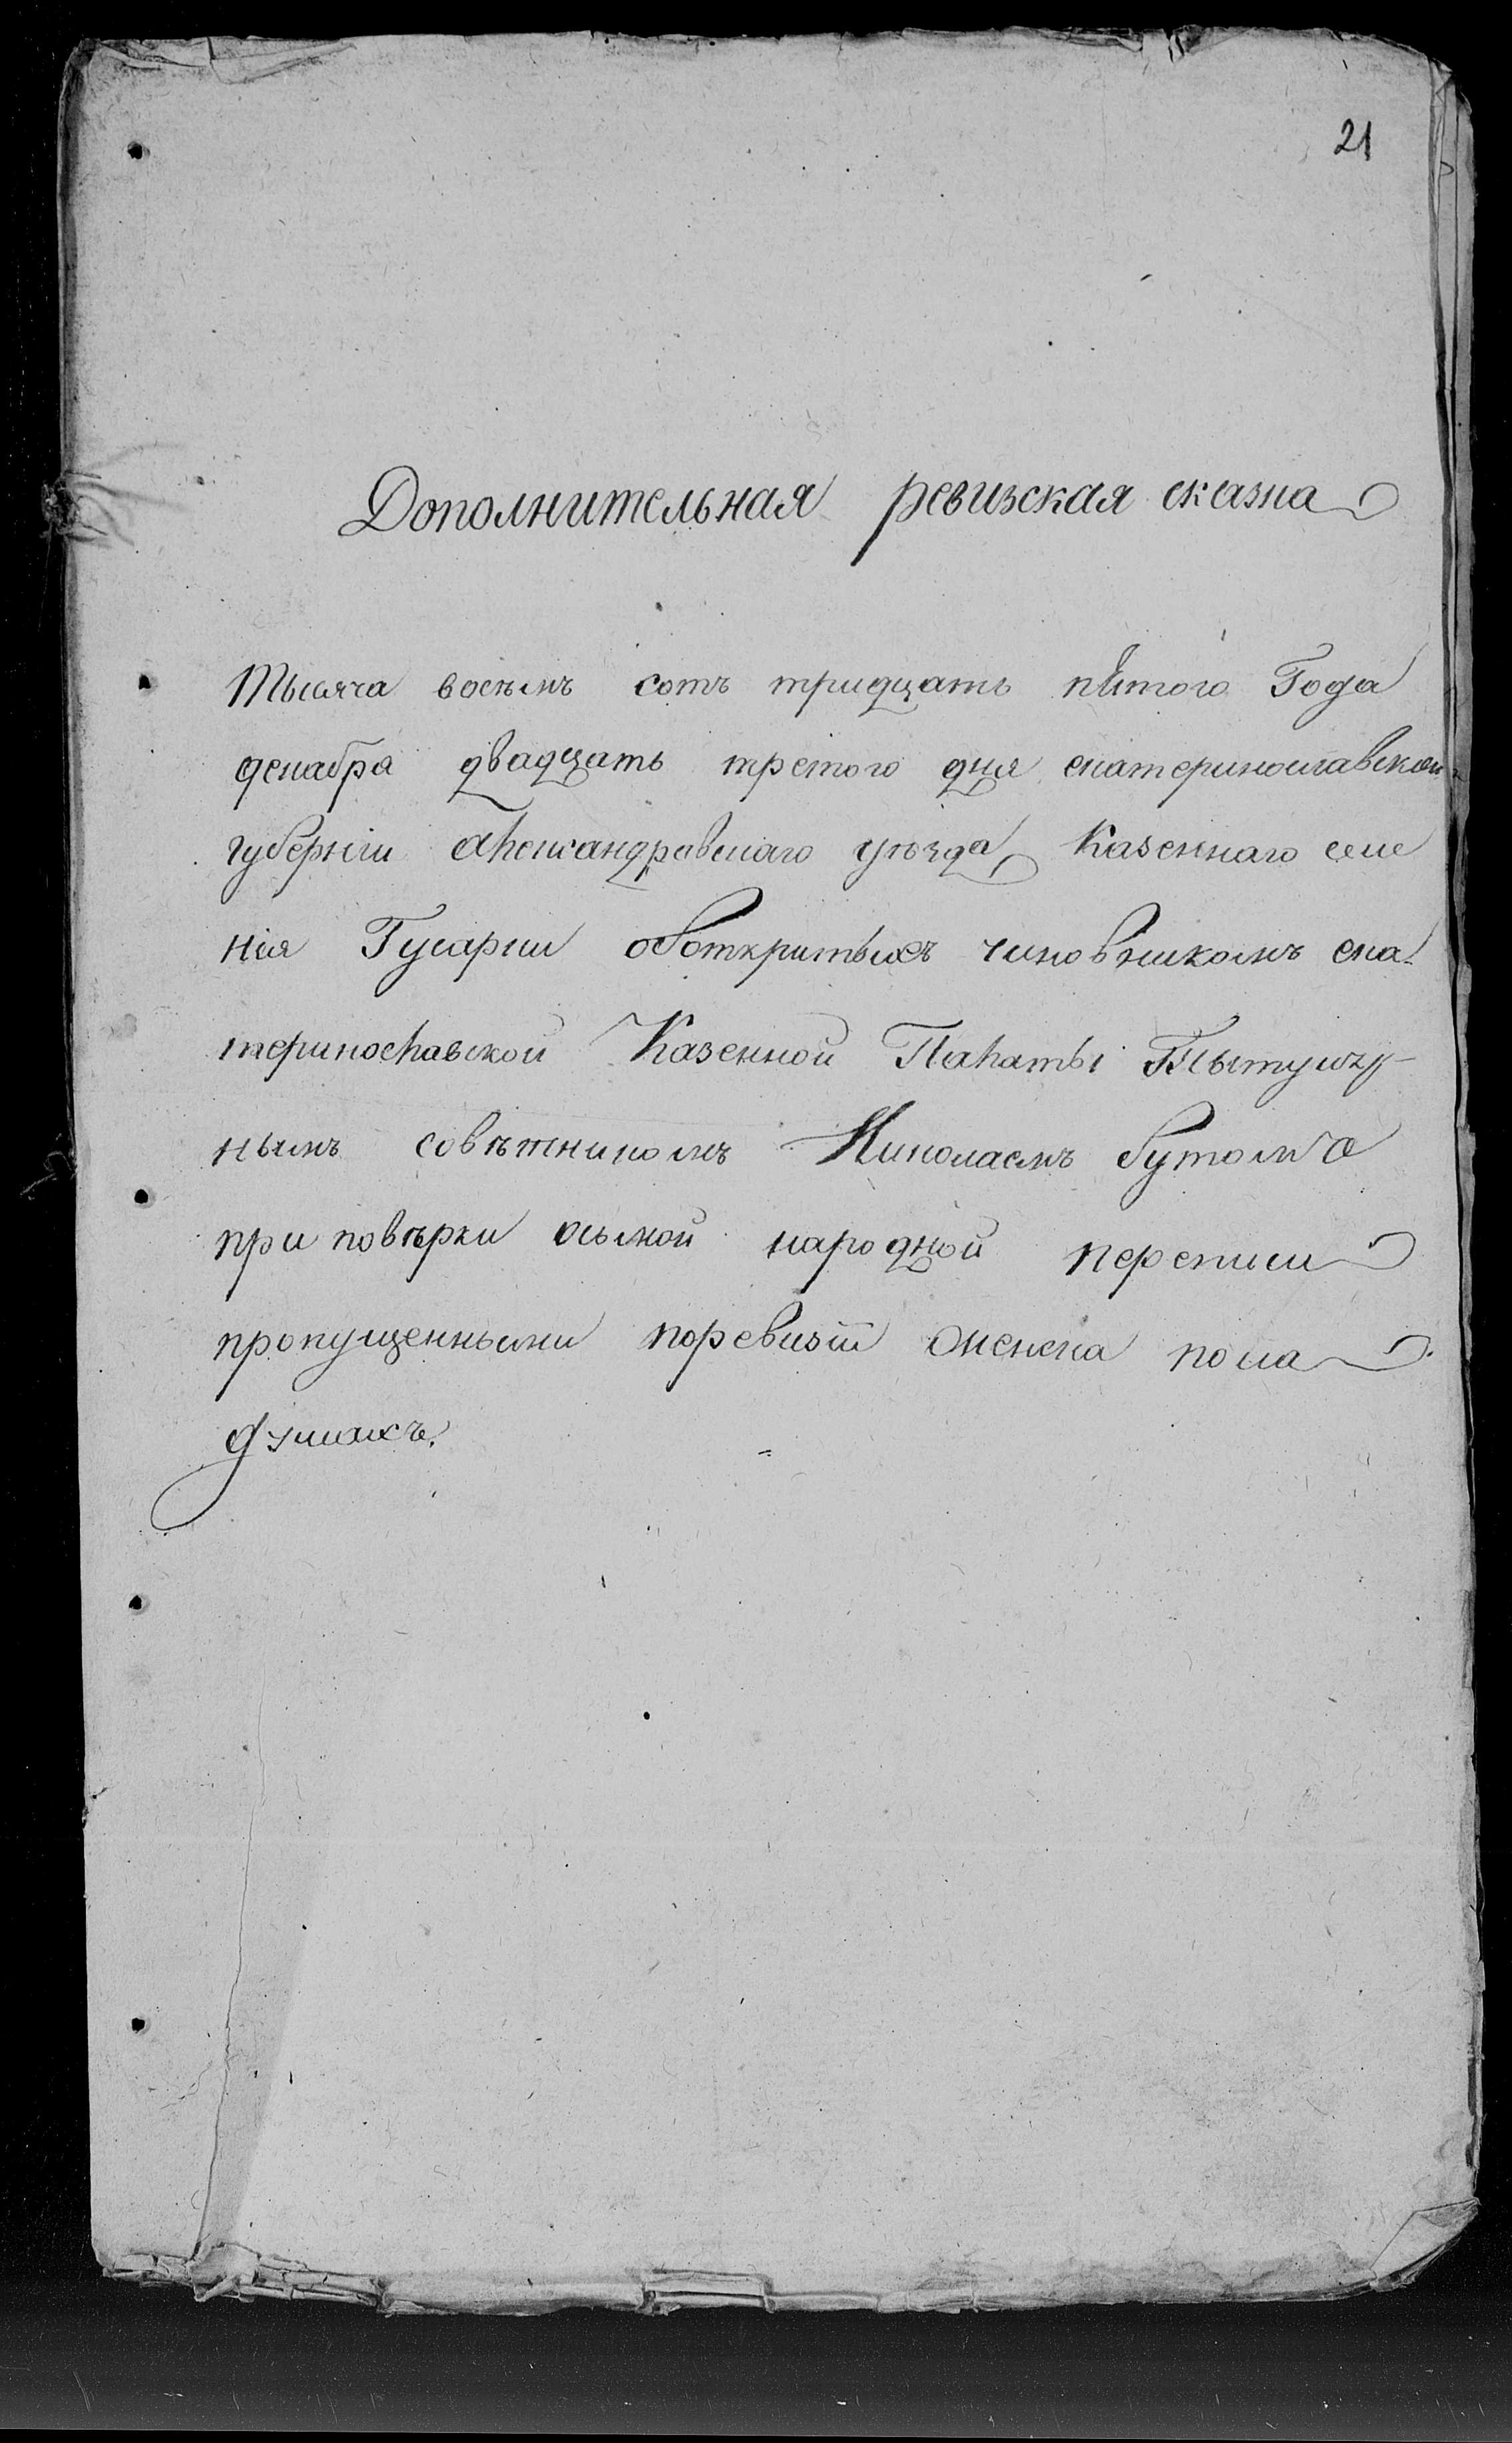 21
Дополнительная ревизская сказка
Тысяча восемъ сотъ тридцать пятого Года
декабра двадцать третого дня екатеринославской
губерніи александровскаго уѣзда Казеннаго селе
нія Гусарки оботкритыхъ чиновникомъ ека-
теринославской Казенной Палаты Титуляр
нымъ совѣтникомъ Николаемъ
при повѣрки осьмой народной переписи
пропущенными поревизіи женска пола
душахъ.